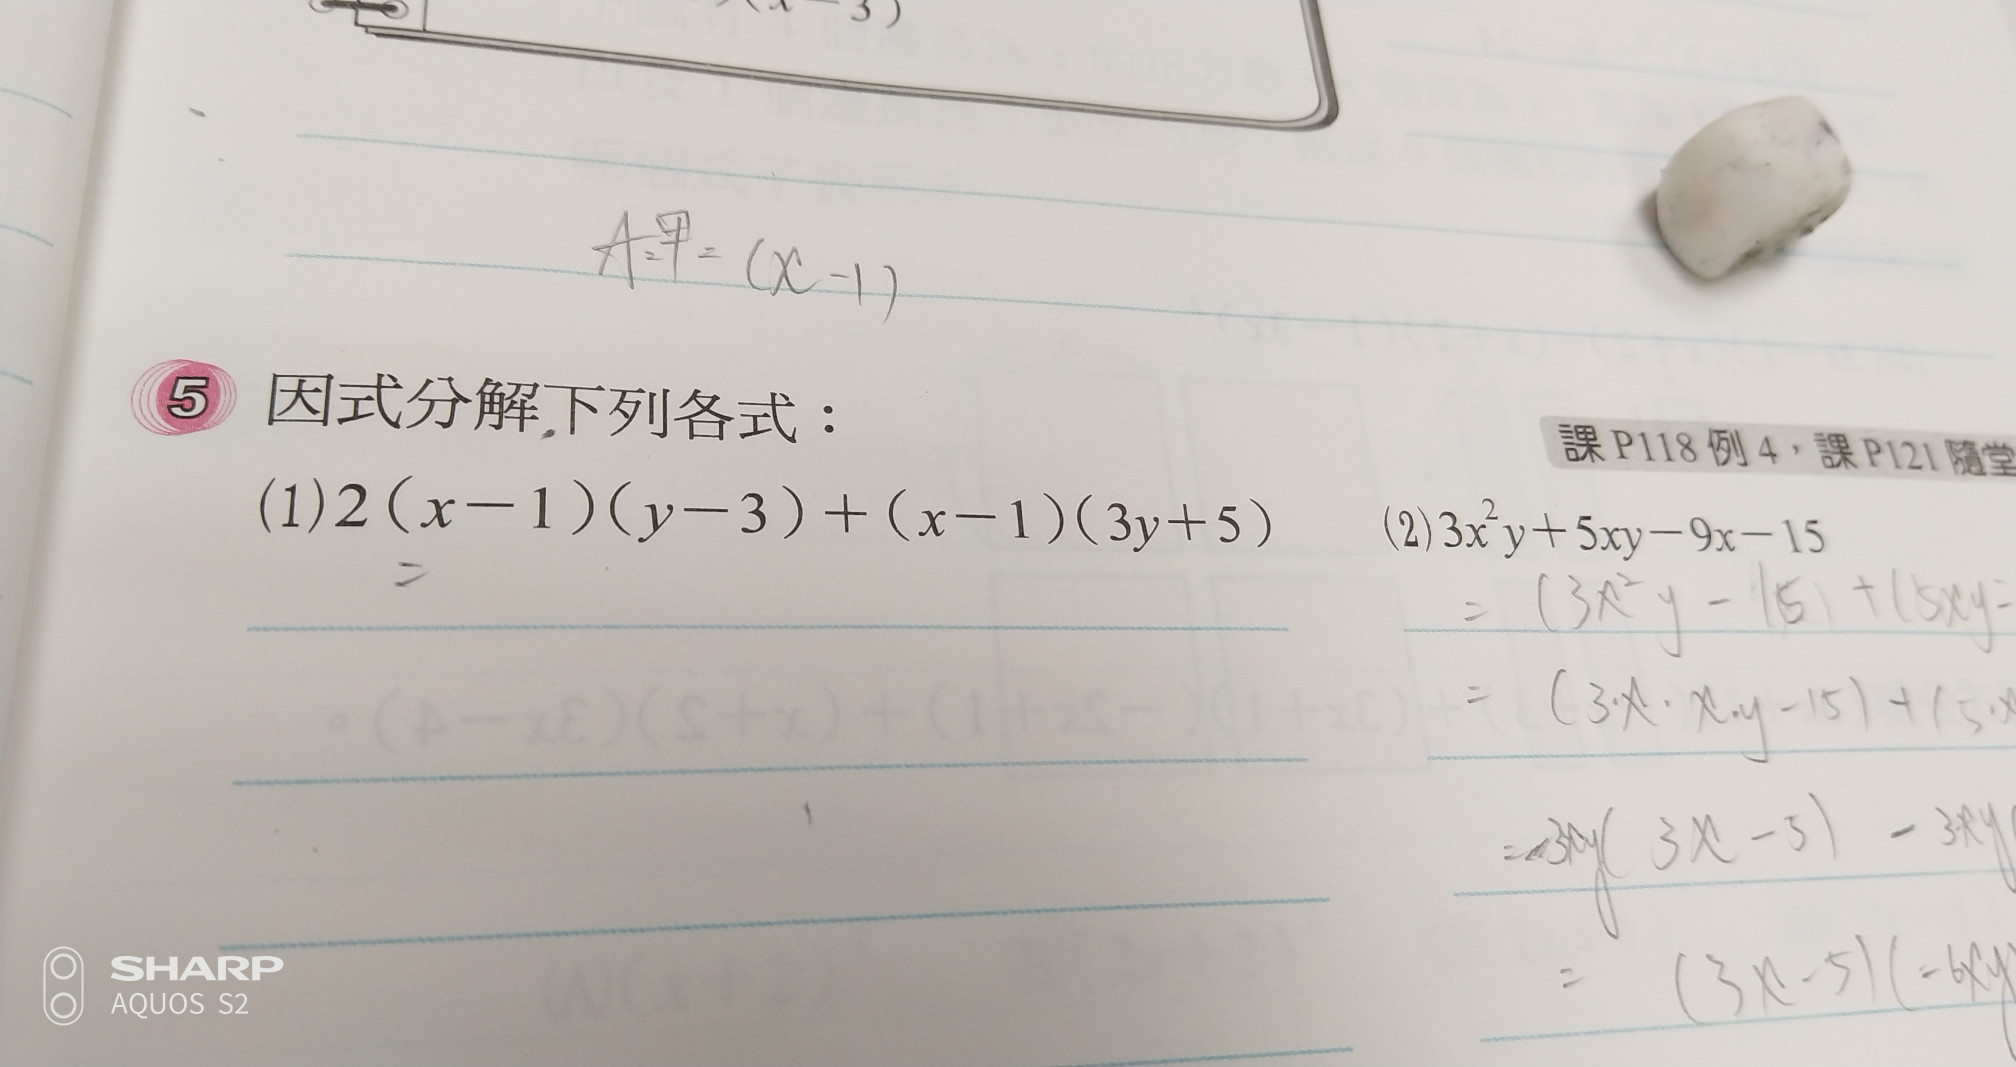 x-3)
A=甲=(x-1)
5 因式分解下列各式：
課P118例4，課P121隨堂
(1)2(x-1)(y-3)+(x-1)(3y+5)
=
(2)3x²y+5xy-9x-15
= (3x²y-15)+(5xy-
= (3·x·x·y-15)+(5·x
=-3xy(3x-5) - 3xy(
= (3x-5)(-6xy)
SHARP
AQUOS S2